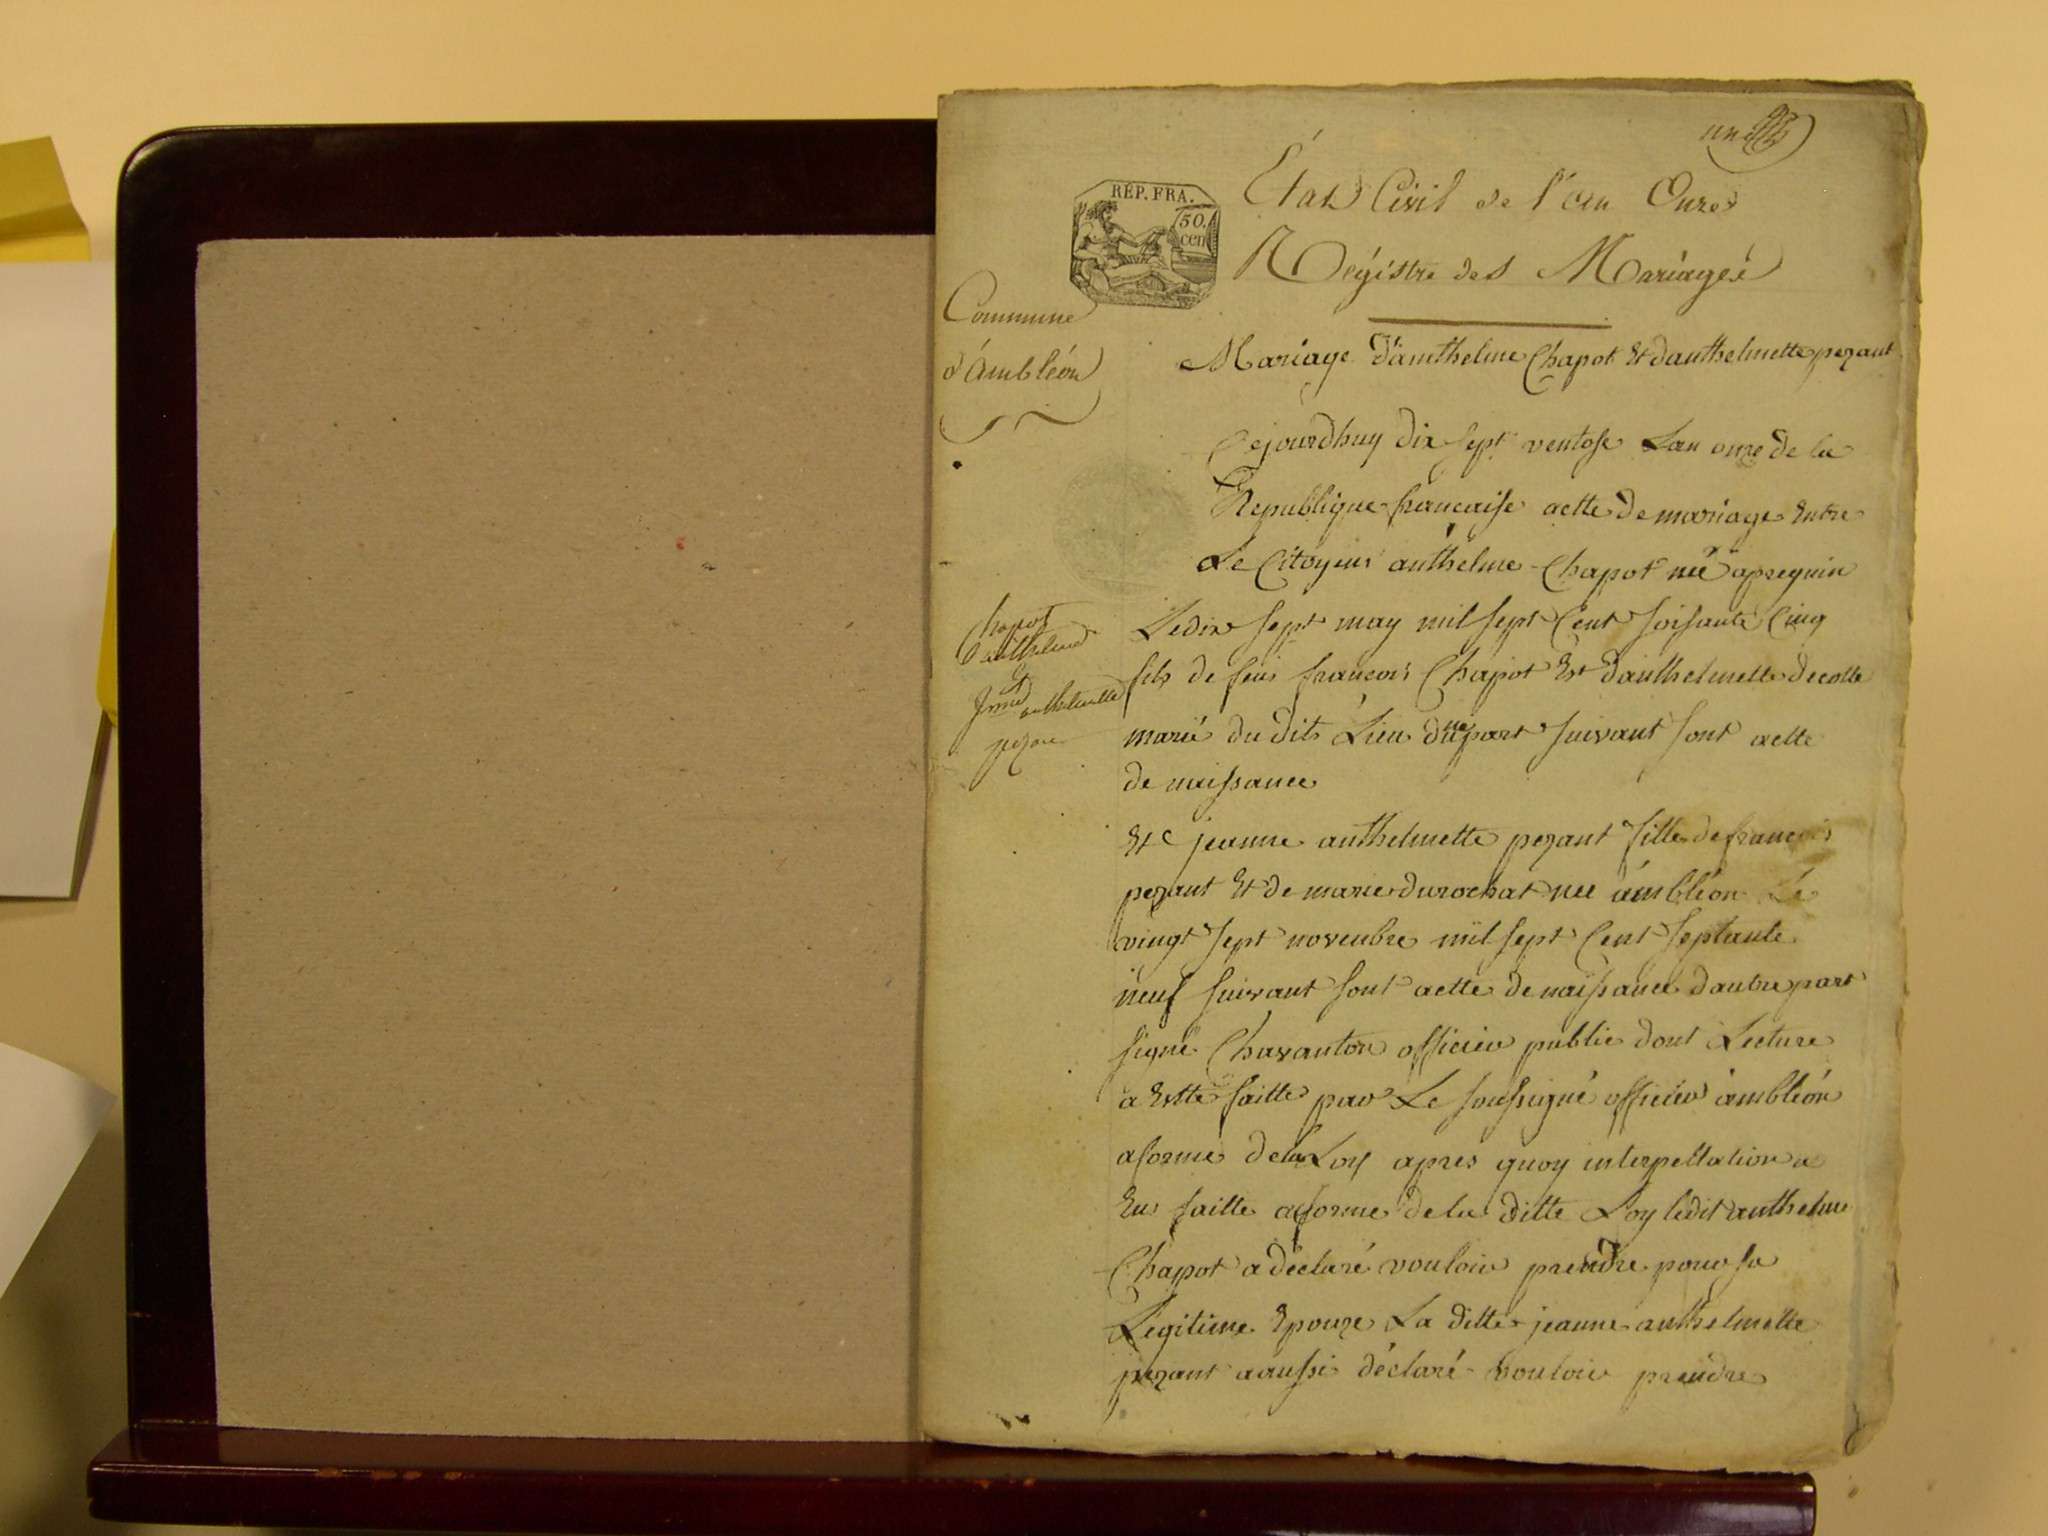 État Civil de l'an Onze
RÉP. FRA.
50.
cen
Régistre des Mariages
Commune
d'Ambléon
Mariage d'anthelme Chapot Et danthelmette pezant
Cejourdhuy dix sept ventose Lan onze de la
Republique francaise acte de mariage Entre
Le Citoyen anthelme Chapot né apregnin
Ledix sept may mil sept Cent soisante Cinq
fils de feu francois Chapot Et danthelmette decotte
marié du dit Lieu dune part suivant sont actte
de naissance
Chapot
anthelme
et
anthelmette
pezan
Et jeanne anthelmette pezant fille de francois
pezant Et de marie durochat nee ámbléon Le
vingt sept novenbre mil sept Cent septante
neuf suivant sont actte de naissance dautre part
signé Chavanton officier public dont Lecture
a Estte faitte par Le soussigné officier ámbléon
aforme dela Loy apres quoy interpellation a
Eu faitte aforme dela ditte Loy ledit anthelme
Chapot a déclaré vouloir prendre pour sa
Legitime Epouze La ditte jeanne anthelmette
pezant a aussi déclaré vouloir prendre